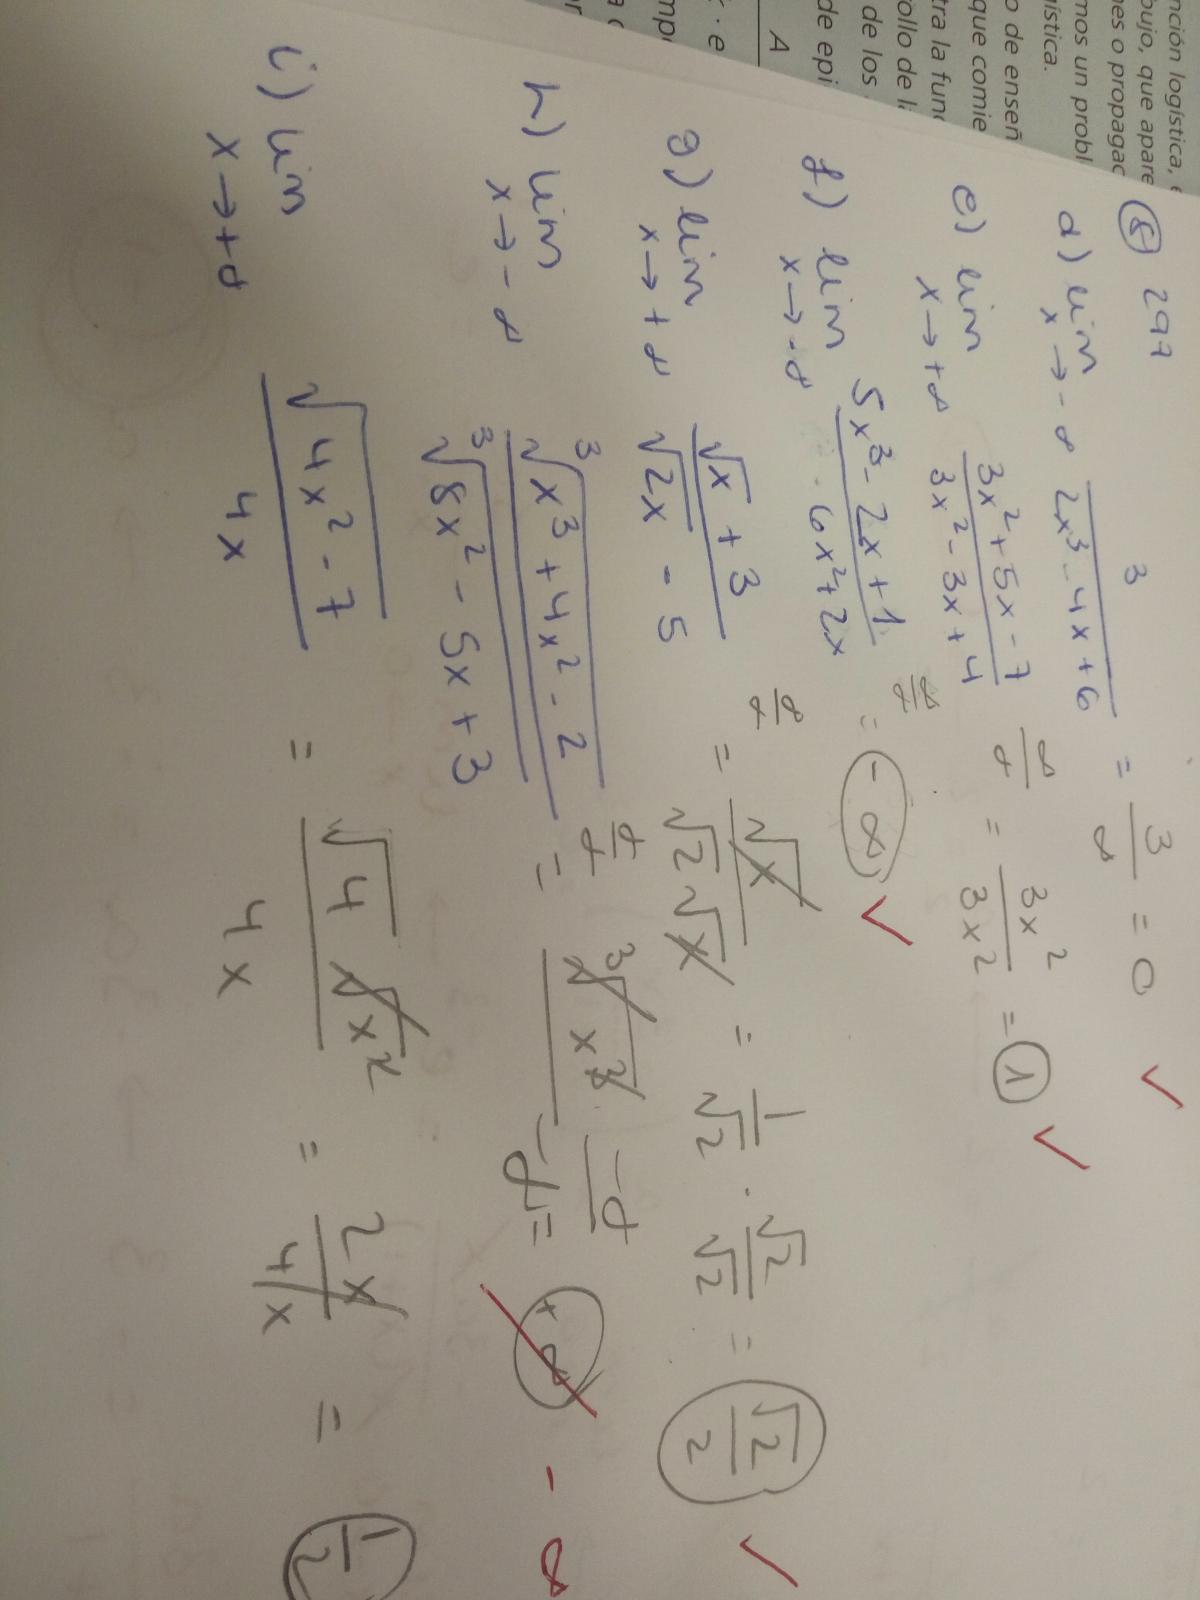 nción logística, e
bujo, que apare
nes o propagac
mos un probl
ística.
o de enseñ
que comie
tra la func
rollo de la
de los
de epi
A
x · e
mp
8 297
d) lim x→-∞ 3 / (2x³ - 4x + 6) = 3/∞ = 0 ✓
e) lim x→+∞ (3x² + 5x - 7) / (3x² - 3x + 4) ∞/∞ = 3x²/3x² = 1 ✓
f) lim x→-∞ (5x³ - 2x + 1) / (6x² + 2x) ∞/∞ = -∞ ✓
g) lim x→+∞ (√x + 3) / (√2x - 5) ∞/∞ = √x / (√2 √x) = 1/√2 · √2/√2 = √2/2 ✓
h) lim x→-∞ ³√(x³ + 4x² - 2) / ³√(8x² - 5x + 3) ∞/∞ = ³√x³ -∞ / -∞ = +∞ - ∞
i) lim x→+∞ √(4x² - 7) / 4x = √4 √x² / 4x = 2x/4x = 1/2